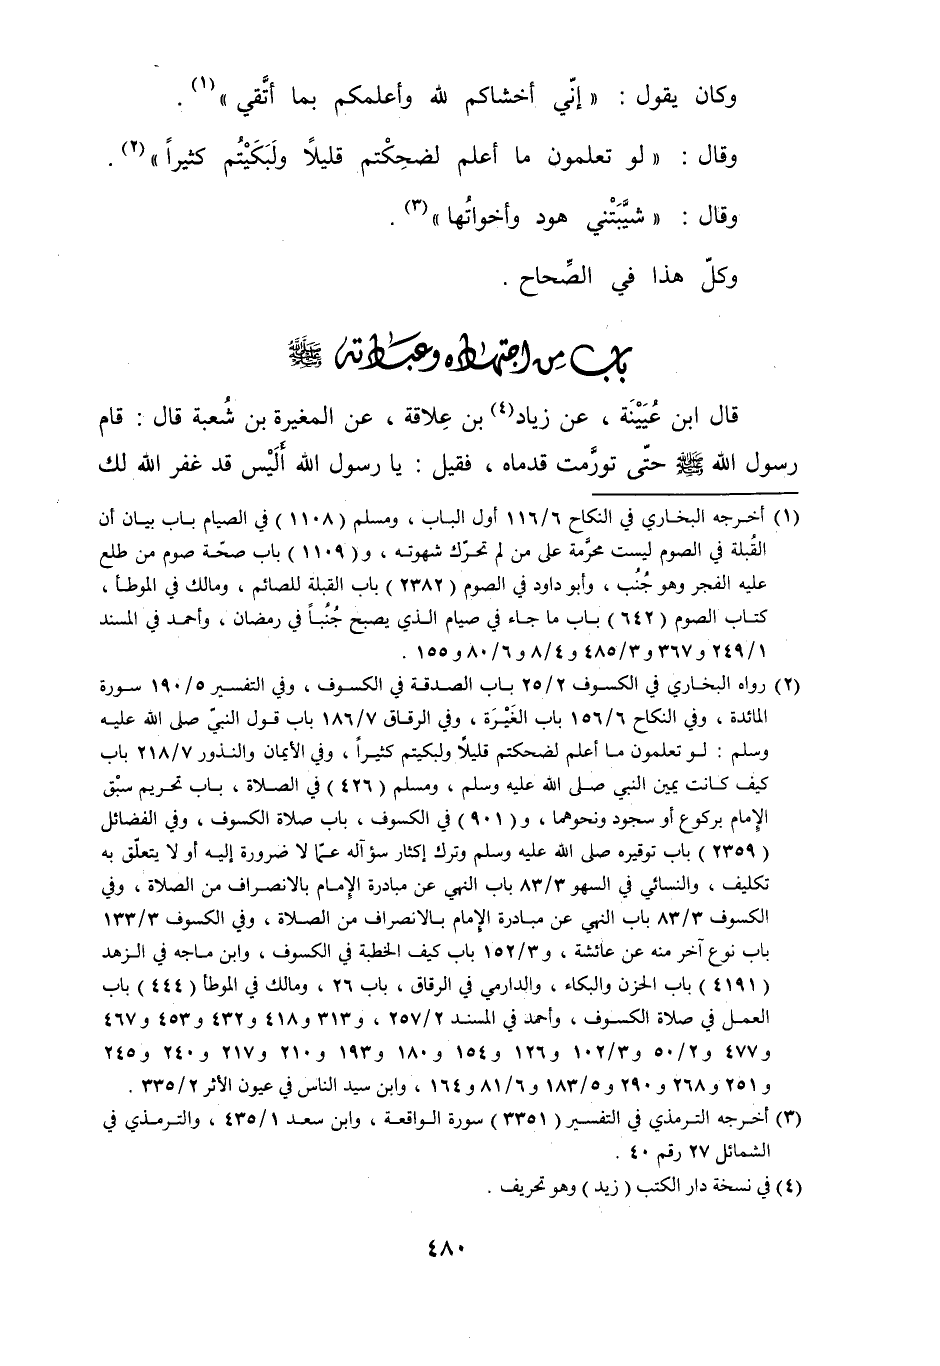 وكان يقول : « إنّي أخشاكم لله وأعلمكم بما أتَّقي »(١) .
وقال : « لو تعلمون ما أعلم لضحِكْتم قليلاً ولَبَكَيْتُم كثيراً »(٢) .
وقال : « شيَّبَتْني هود وأخواتُها »(٣) .
وكلّ هذا في الصِّحاح .
باب من اجتهاده وعبادته ﷺ
قال ابن عُيَيْنَة ، عن زياد(٤) بن عِلاقة ، عن المغيرة بن شُعبة قال : قام
رسول الله ﷺ حتّى تورَّمت قدماه ، فقيل : يا رسول الله أَلَيْس قد غفر الله لك
(١) أخرجه البخاري في النكاح ١١٦/٦ أول الباب ، ومسلم ( ١١٠٨ ) في الصيام باب بيان أن
القُبلة في الصوم ليست محرَّمة على من لم تحرّك شهوته ، و( ١١٠٩ ) باب صحّة صوم من طلع
عليه الفجر وهو جُنُب ، وأبو داود في الصوم ( ٢٣٨٢ ) باب القبلة للصائم ، ومالك في الموطأ ،
كتاب الصوم ( ٦٤٢ ) باب ما جاء في صيام الذي يصبح جُنُباً في رمضان ، وأحمد في المسند
٢٤٩/١ و٣٦٧ و٤٨٥/٣ و٨/٤ و٨٠/٦ و١٥٥ .
(٢) رواه البخاري في الكسوف ٢٥/٢ باب الصدقة في الكسوف ، وفي التفسير ١٩٠/٥ سورة
المائدة ، وفي النكاح ١٥٦/٦ باب الغَيْرَة ، وفي الرقاق ١٨٦/٧ باب قول النبيّ صلى الله عليه
وسلم : لو تعلمون ما أعلم لضحكتم قليلاً ولبكيتم كثيراً ، وفي الأيمان والنذور ٢١٨/٧ باب
كيف كانت يمين النبي صلى الله عليه وسلم ، ومسلم ( ٤٢٦ ) في الصلاة ، باب تحريم سبْق
الإمام بركوع أو سجود ونحوهما ، و( ٩٠١ ) في الكسوف ، باب صلاة الكسوف ، وفي الفضائل
( ٢٣٥٩ ) باب توقيره صلى الله عليه وسلم وترك إكثار سؤآله عمّا لا ضرورة إليه أو لا يتعلّق به
تكليف ، والنسائي في السهو ٨٣/٣ باب النهي عن مبادرة الإمام بالانصراف من الصلاة ، وفي
الكسوف ٨٣/٣ باب النهي عن مبادرة الإمام بالانصراف من الصلاة ، وفي الكسوف ١٣٣/٣
باب نوع آخر منه عن عائشة ، و١٥٢/٣ باب كيف الخطبة في الكسوف ، وابن ماجه في الزهد
( ٤١٩١ ) باب الحزن والبكاء ، والدارمي في الرقاق ، باب ٢٦ ، ومالك في الموطأ ( ٤٤٤ ) باب
العمل في صلاة الكسوف ، وأحمد في المسند ٢٥٧/٢ ، و٣١٣ و٤١٨ و٤٣٢ و٤٥٣ و٤٦٧
و٤٧٧ و٥٠/٢ و١٠٢/٣ و١٢٦ و١٥٤ و١٨٠ و١٩٣ و٢١٠ و٢١٧ و٢٤٠ و٢٤٥
و٢٥١ و٢٦٨ و٢٩٠ و١٨٣/٥ و٨١/٦ و١٦٤ ، وابن سيد الناس في عيون الأثر ٣٣٥/٢ .
(٣) أخرجه الترمذي في التفسير ( ٣٣٥١ ) سورة الواقعة ، وابن سعد ٤٣٥/١ ، والترمذي في
الشمائل ٢٧ رقم ٤٠ .
(٤) في نسخة دار الكتب ( زيد ) وهو تحريف .
٤٨٠